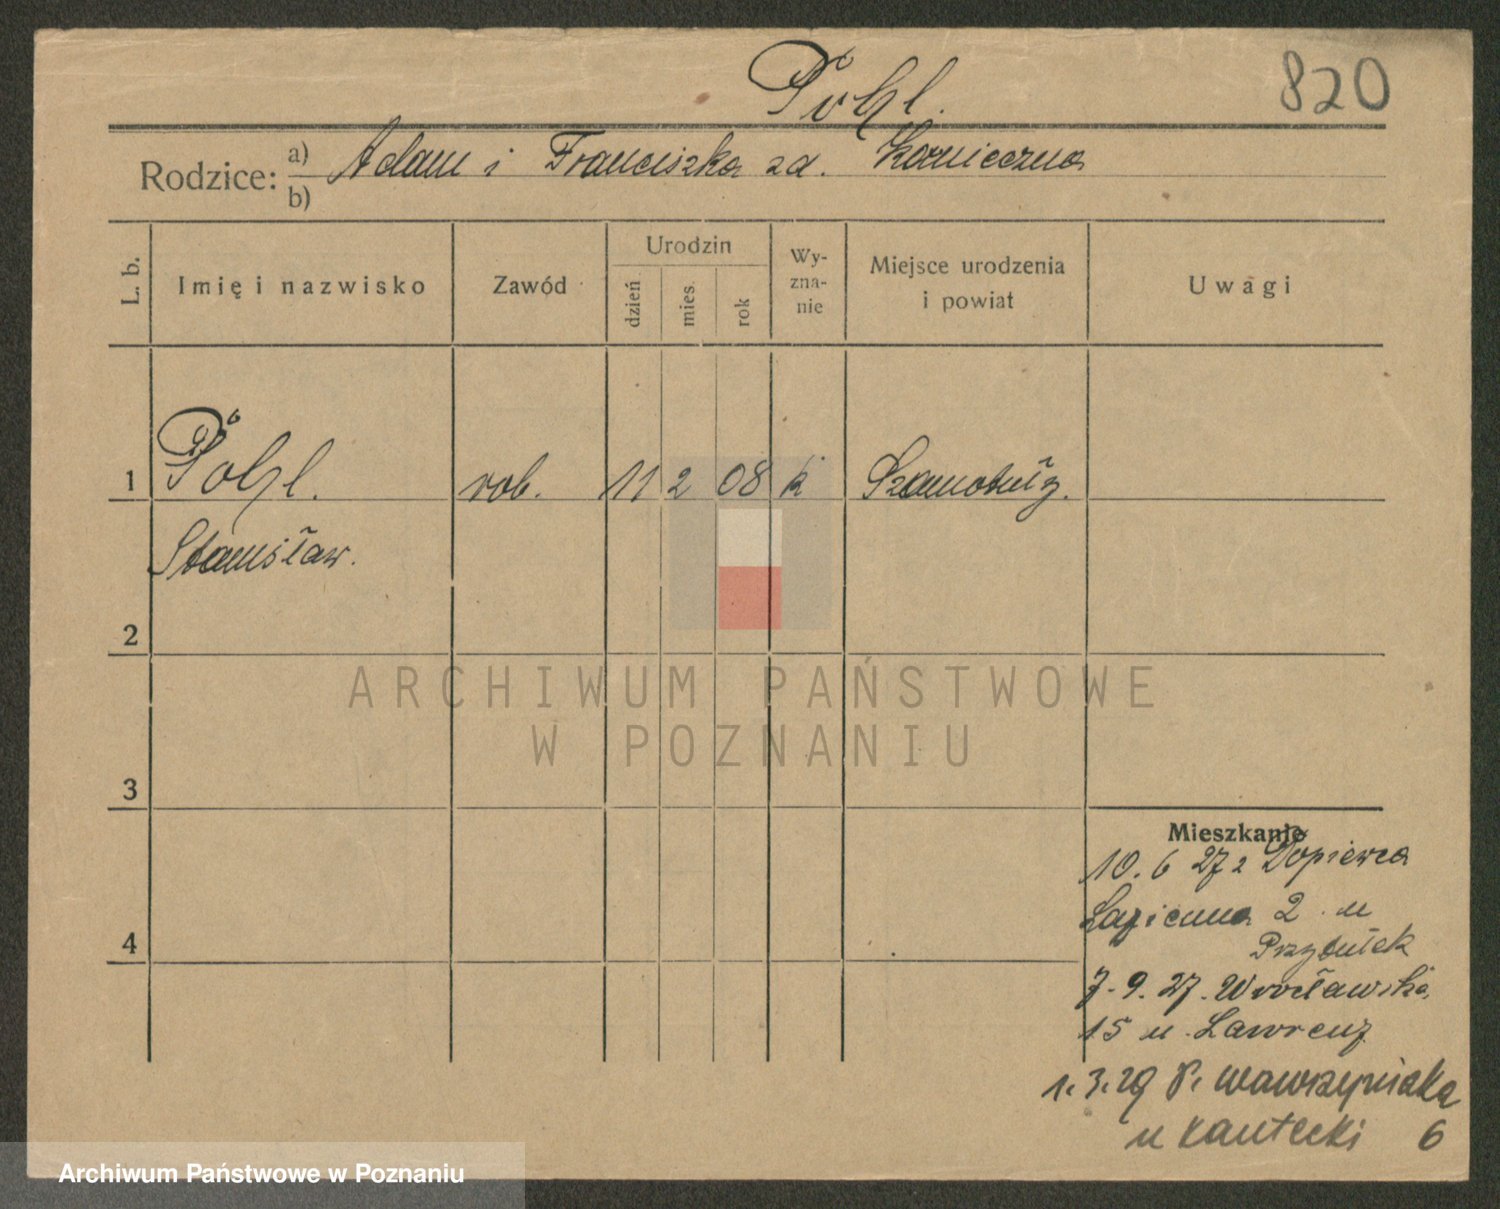 820
Pöhl.
Rodzice: a) Adam i Franciszka zd. Korniczna
b)
L. b. Imię i nazwisko Zawód Urodzin dzień mies. rok Wy-zna-nie Miejsce urodzenia i powiat Uwagi
1 Pöhl. rob. 11 2 08 k Szamotuły.
Stanisław.
2
3
4
Mieszkanie
10. 6 27 z Dopiewca
Łazienna 2 u
Przybułek
7. 9. 27. Wrocławska
15 u. Lawrenz
1. 3. 29 P. Wawrzyniaka
u Kantecki 6
ARCHIWUM PAŃSTWOWE
W POZNANIU
Archiwum Państwowe w Poznaniu